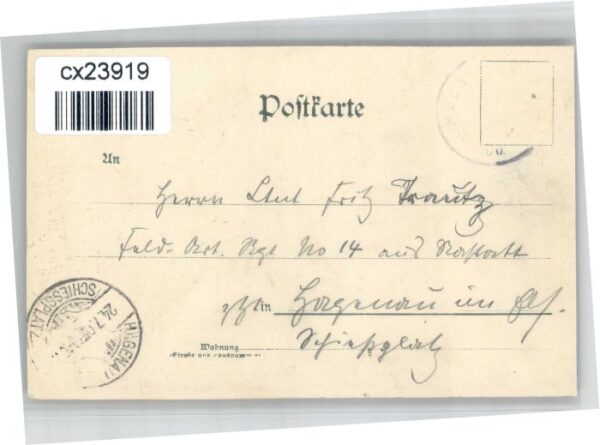 cx23919
Postkarte
An
Herrn Ltnt Fritz Trautz
Feld. Art. Rgt No 14 aus Rastatt
zZt in Hagenau im Els.
Schießplatz
Wohnung
(Straße und Hausnummer)
HAGENAU
SCHIESSPLATZ
24.7.